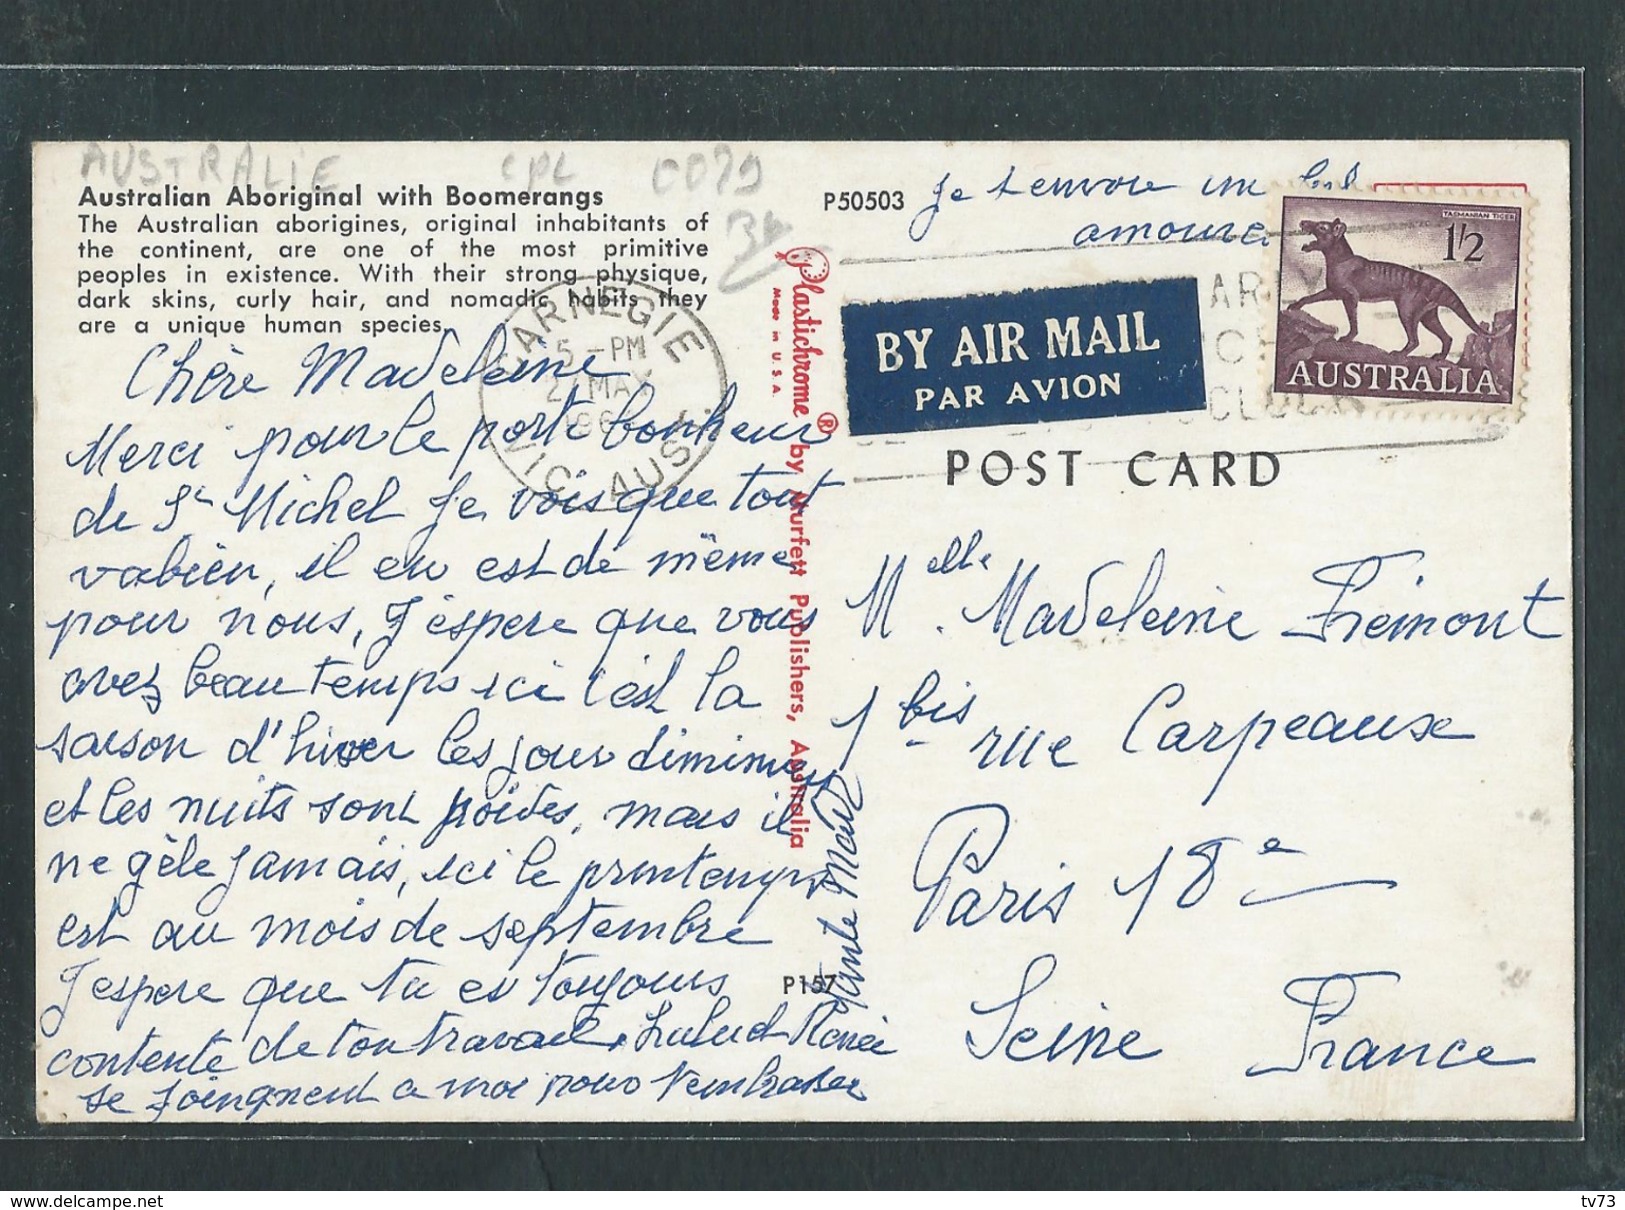 AUSTRALIE CPL 0079
Australian Aboriginal with Boomerangs
The Australian aborigines, original inhabitants of
the continent, are one of the most primitive
peoples in existence. With their strong physique,
dark skins, curly hair, and nomadic habits they
are a unique human species.
P50503
Je t'envoie un
CARNEGIE
5 - PM
MAY
196
VIC. AUST
Plastichrome ® by Murfett Publishers, Australia
MADE IN U.S.A.
BY AIR MAIL
PAR AVION
TASMANIAN TIGER
1/2
AUSTRALIA
POST CARD
Chère Madeleine
Merci pour le porte bonheur
de St Michel Je vois que tout
va bien, il en est de même
pour nous, J'espere que vous
avez beau temps ici c'est la
saison d'hiver les jour diminuent
et les nuits sont froides, mais il
ne gèle jamais, ici le printemps
est au mois de septembre
J'espere que tu es toujours
contente de ton travail, et Renée
se joingnent a moi pour t'embrasser
Tante
P157
Melle. Madeleine Frémont
1 bis rue Carpeaux
Paris 18e
Seine France
tv73